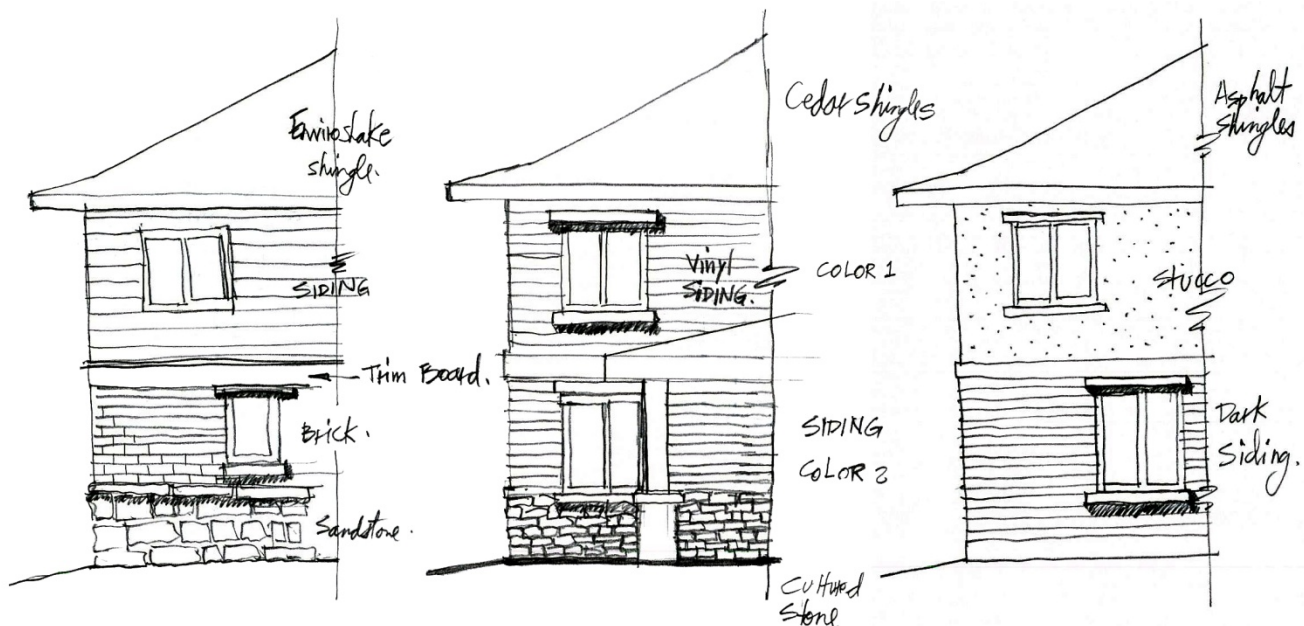 Enviroshake
shingle.
SIDING
Trim Board.
Brick.
Sandstone.
Cedar shingles
Vinyl
SIDING.
COLOR 1
SIDING
COLOR 2
Cultured
Stone
Asphalt
shingles
Stucco
Dark
Siding.